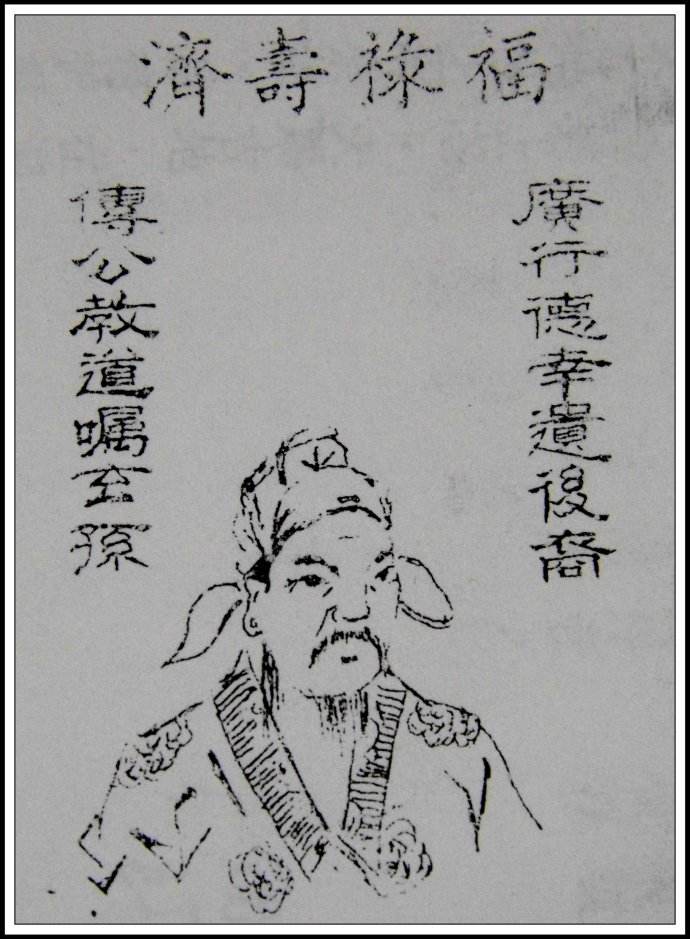 福祿壽濟
廣行德幸遺後裔
傳公教道囑玄孫